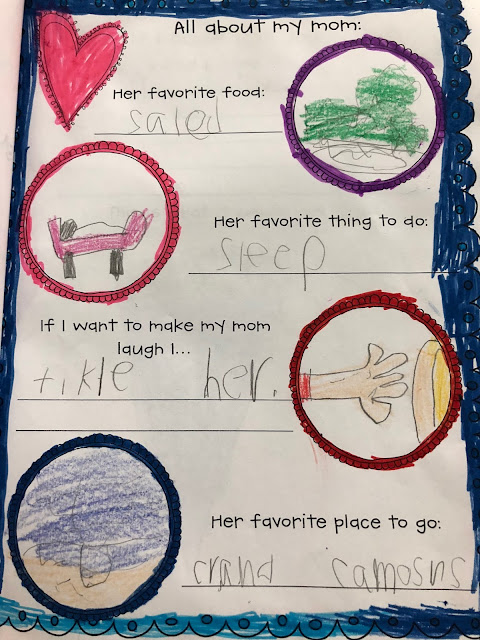 All about my mom:
Her favorite food:
saled
Her favorite thing to do:
sleep
If I want to make my mom
laugh I...
tikle her.
Her favorite place to go:
crand camosns